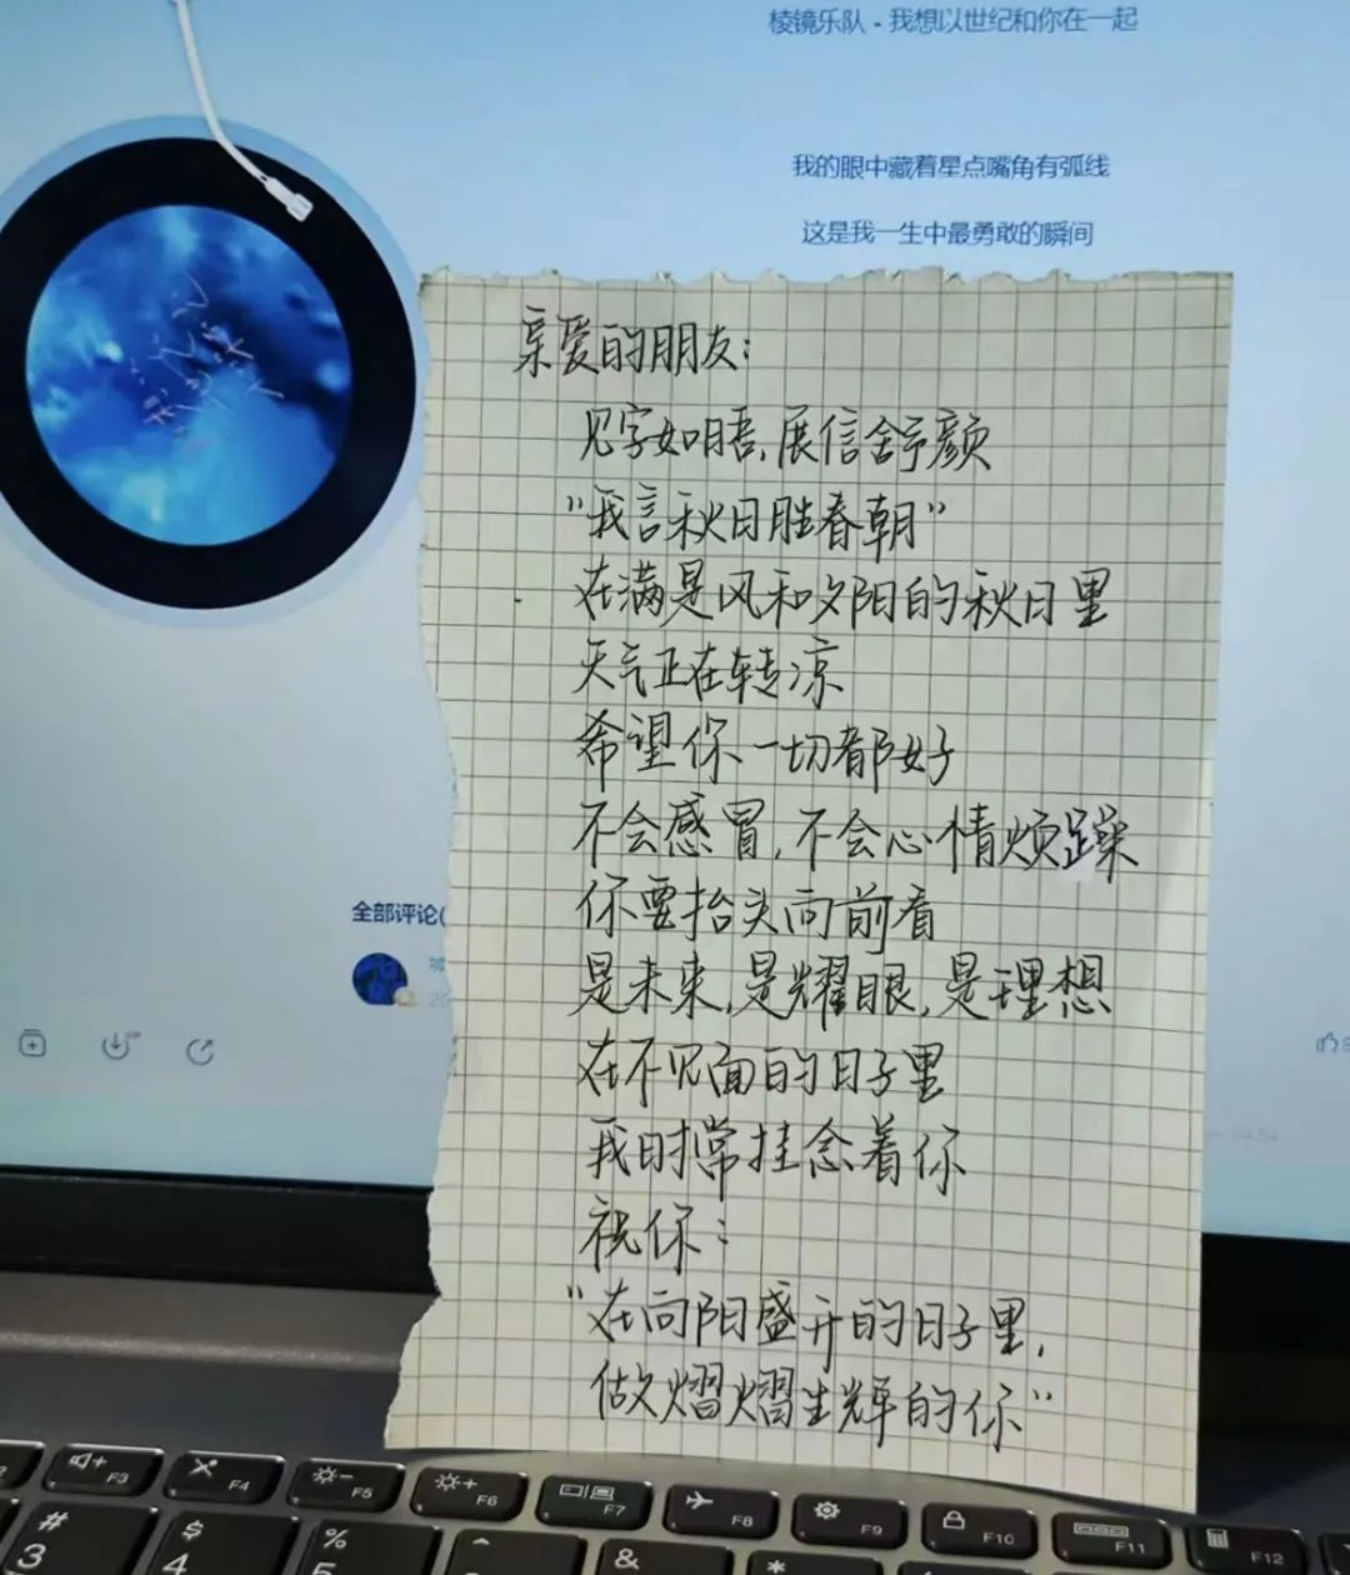 棱镜乐队 - 我想以世纪和你在一起
我的眼中藏着星点嘴角有弧线
这是我一生中最勇敢的瞬间
亲爱的朋友:
见字如晤,展信舒颜
"我言秋日胜春朝"
在满是风和夕阳的秋日里
天气正在转凉
希望你一切都好
不会感冒,不会心情烦躁
你要抬头向前看
是未来,是耀眼,是理想
在不见面的日子里
我时常挂念着你
祝你:
"在向阳盛开的日子里,
做熠熠生辉的你"
全部评论(
F3
F4
F5
F6
F7
F8
F9
F10
F11
F12
# 3
$ 4
% 5
^
&
*